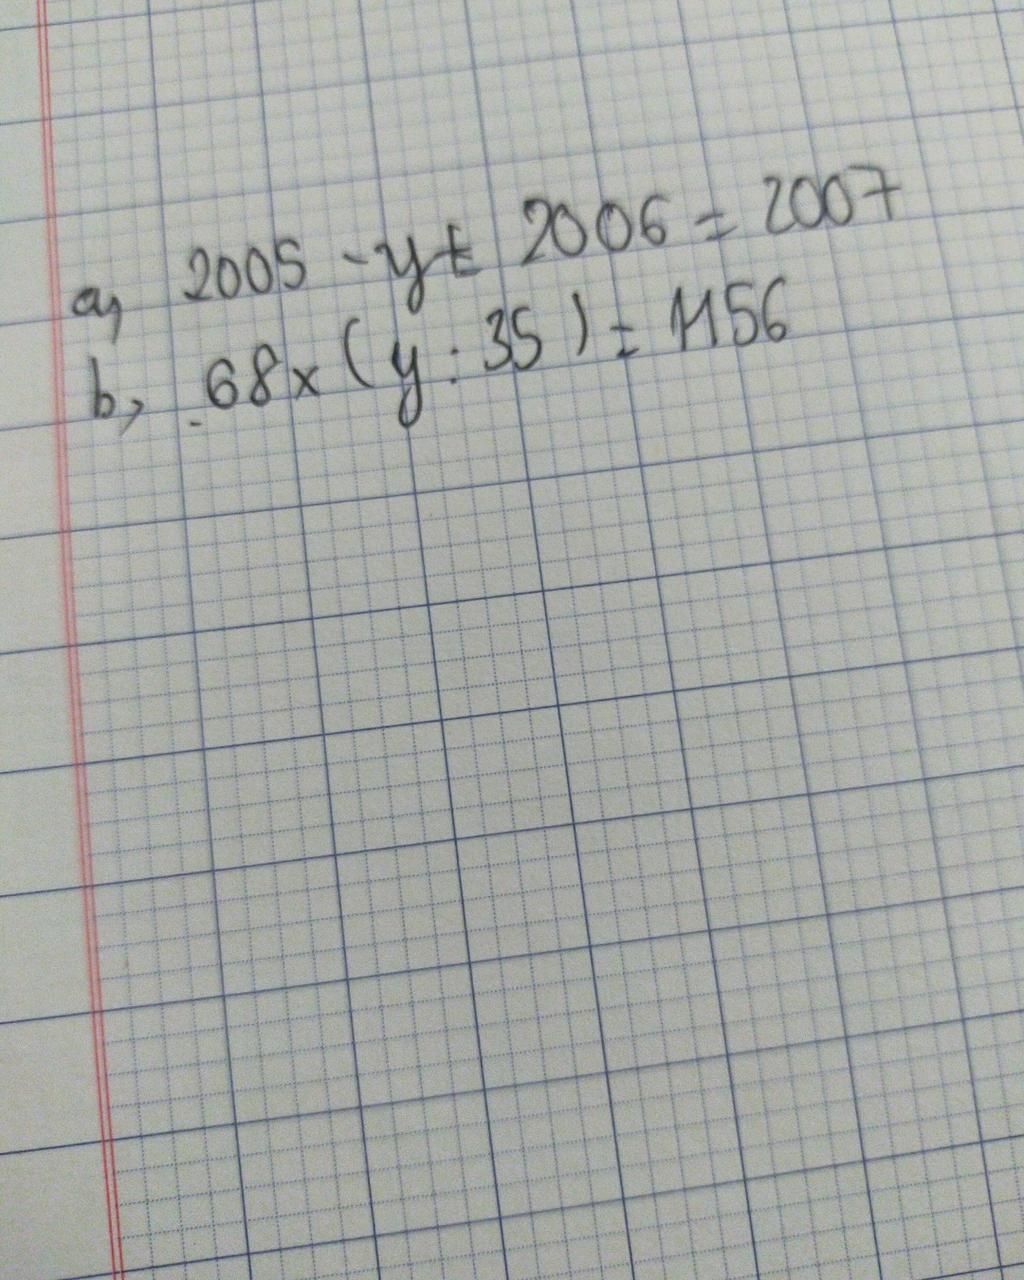 a, 2005 - y + 2006 = 2007
b, 68 x ( y : 35 ) = 1156